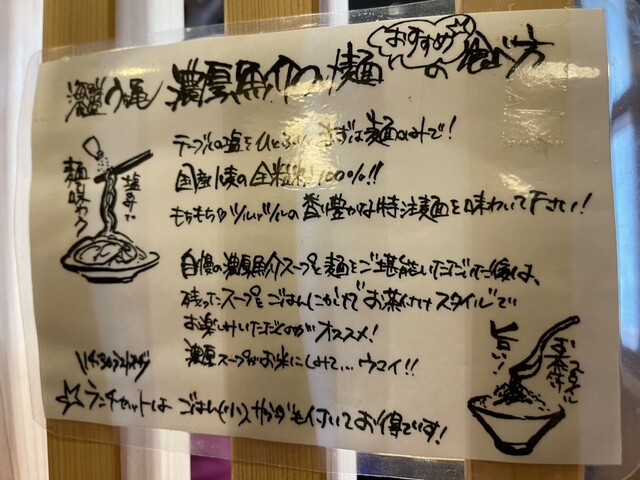 濃厚魚介つけ麺 おすすめの食べ方
テーブルの塩をひとふり まずは麺だけで!
国産小麦の全粒粉100%!!
もちもちツルッツルの香り豊かな特注麺を味わって下さい!
塩だけで
麺を味わう
自慢の濃厚魚介スープと麺をご堪能いただいた後は、
残ったスープをごはんにかけてお茶付けスタイルで
お楽しみいただくのがオススメ!
濃厚スープがお米にしみて...ウマイ!!
旨い!
お茶付け
スタイル
☆ランチセットは ごはん(小)サラダも付いてお得です!